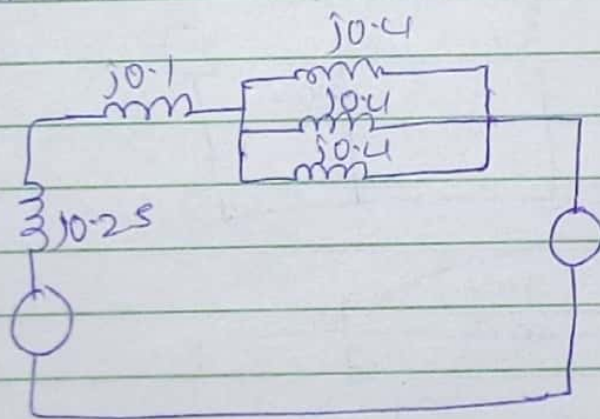 j0.4
j0.1
j0.4
j0.4
j0.25